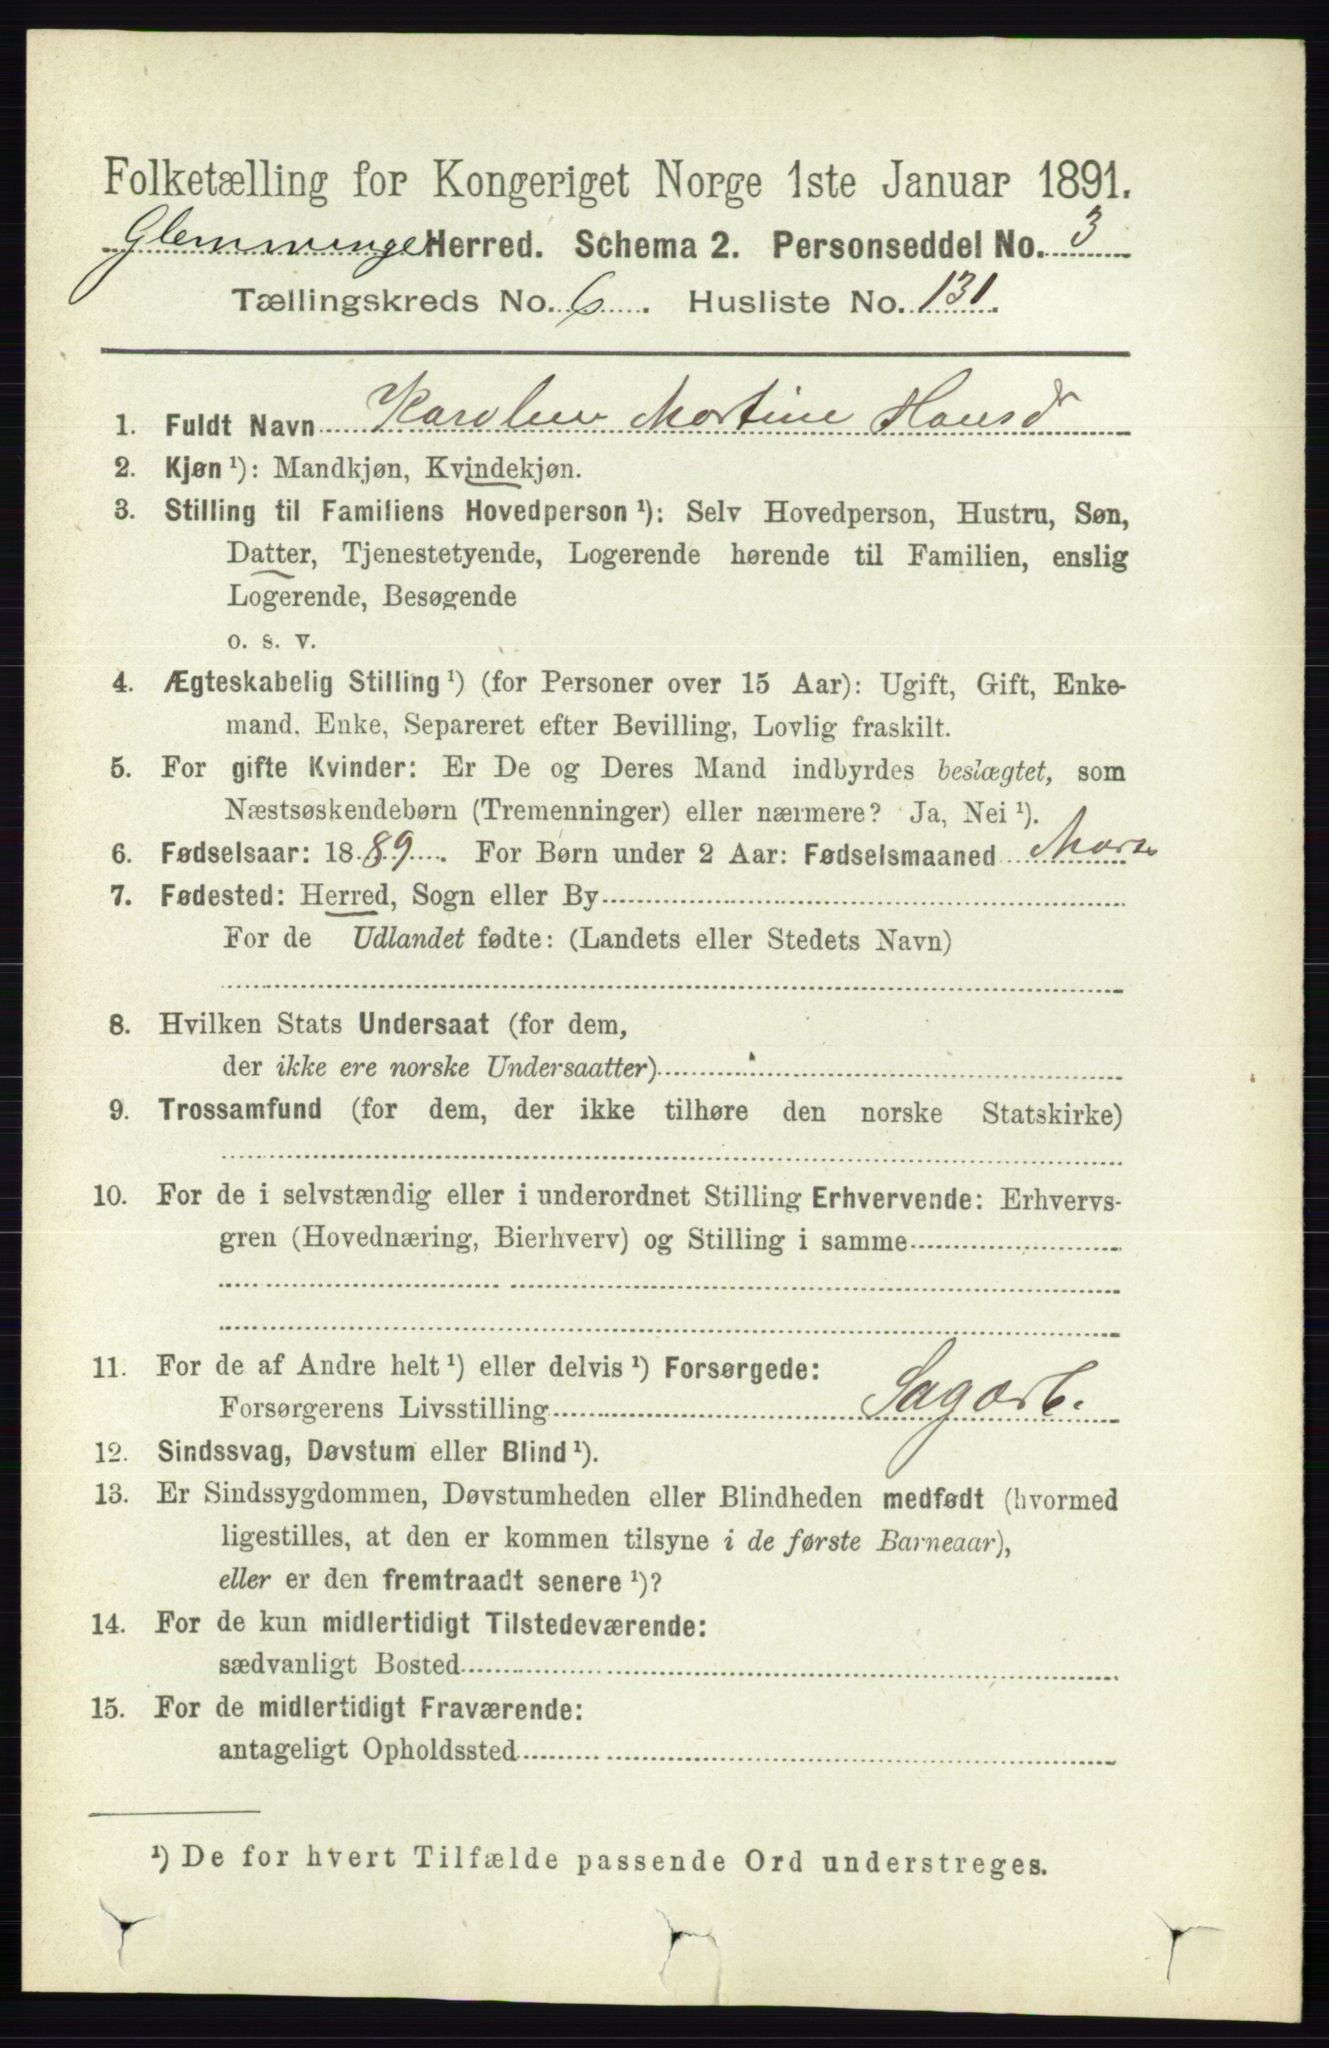 Folketælling for Kongeriget Norge 1ste Januar 1891.
Glemminge Herred. Schema 2. Personseddel No. 3
Tællingskreds No. 6. Husliste No. 131.
1. Fuldt Navn Karoline Martine Hansd
2. Kjøn ¹): Mandkjøn, Kvindekjøn.
3. Stilling til Familiens Hovedperson ¹): Selv Hovedperson, Hustru, Søn,
Datter, Tjenestetyende, Logerende hørende til Familien, enslig
Logerende, Besøgende
o. s. v.
4. Ægteskabelig Stilling ¹) (for Personer over 15 Aar): Ugift, Gift, Enke-
mand, Enke, Separeret efter Bevilling, Lovlig fraskilt.
5. For gifte Kvinder: Er De og Deres Mand indbyrdes beslægtet, som
Næstsøskendebørn (Tremenninger) eller nærmere? Ja, Nei ¹).
6. Fødselsaar: 1889. For Børn under 2 Aar: Fødselsmaaned Marts
7. Fødested: Herred, Sogn eller By
For de Udlandet fødte: (Landets eller Stedets Navn)
8. Hvilken Stats Undersaat (for dem,
der ikke ere norske Undersaatter)
9. Trossamfund (for dem, der ikke tilhøre den norske Statskirke)
10. For de i selvstændig eller i underordnet Stilling Erhvervende: Erhvervs-
gren (Hovednæring, Bierhverv) og Stilling i samme
11. For de af Andre helt ¹) eller delvis ¹) Forsørgede:
Forsørgerens Livsstilling Sagarb.
12. Sindssvag, Døvstum eller Blind ¹).
13. Er Sindssygdommen, Døvstumheden eller Blindheden medfødt (hvormed
ligestilles, at den er kommen tilsyne i de første Barneaar),
eller er den fremtraadt senere ¹)?
14. For de kun midlertidigt Tilstedeværende:
sædvanligt Bosted
15. For de midlertidigt Fraværende:
antageligt Opholdssted
¹) De for hvert Tilfælde passende Ord understreges.